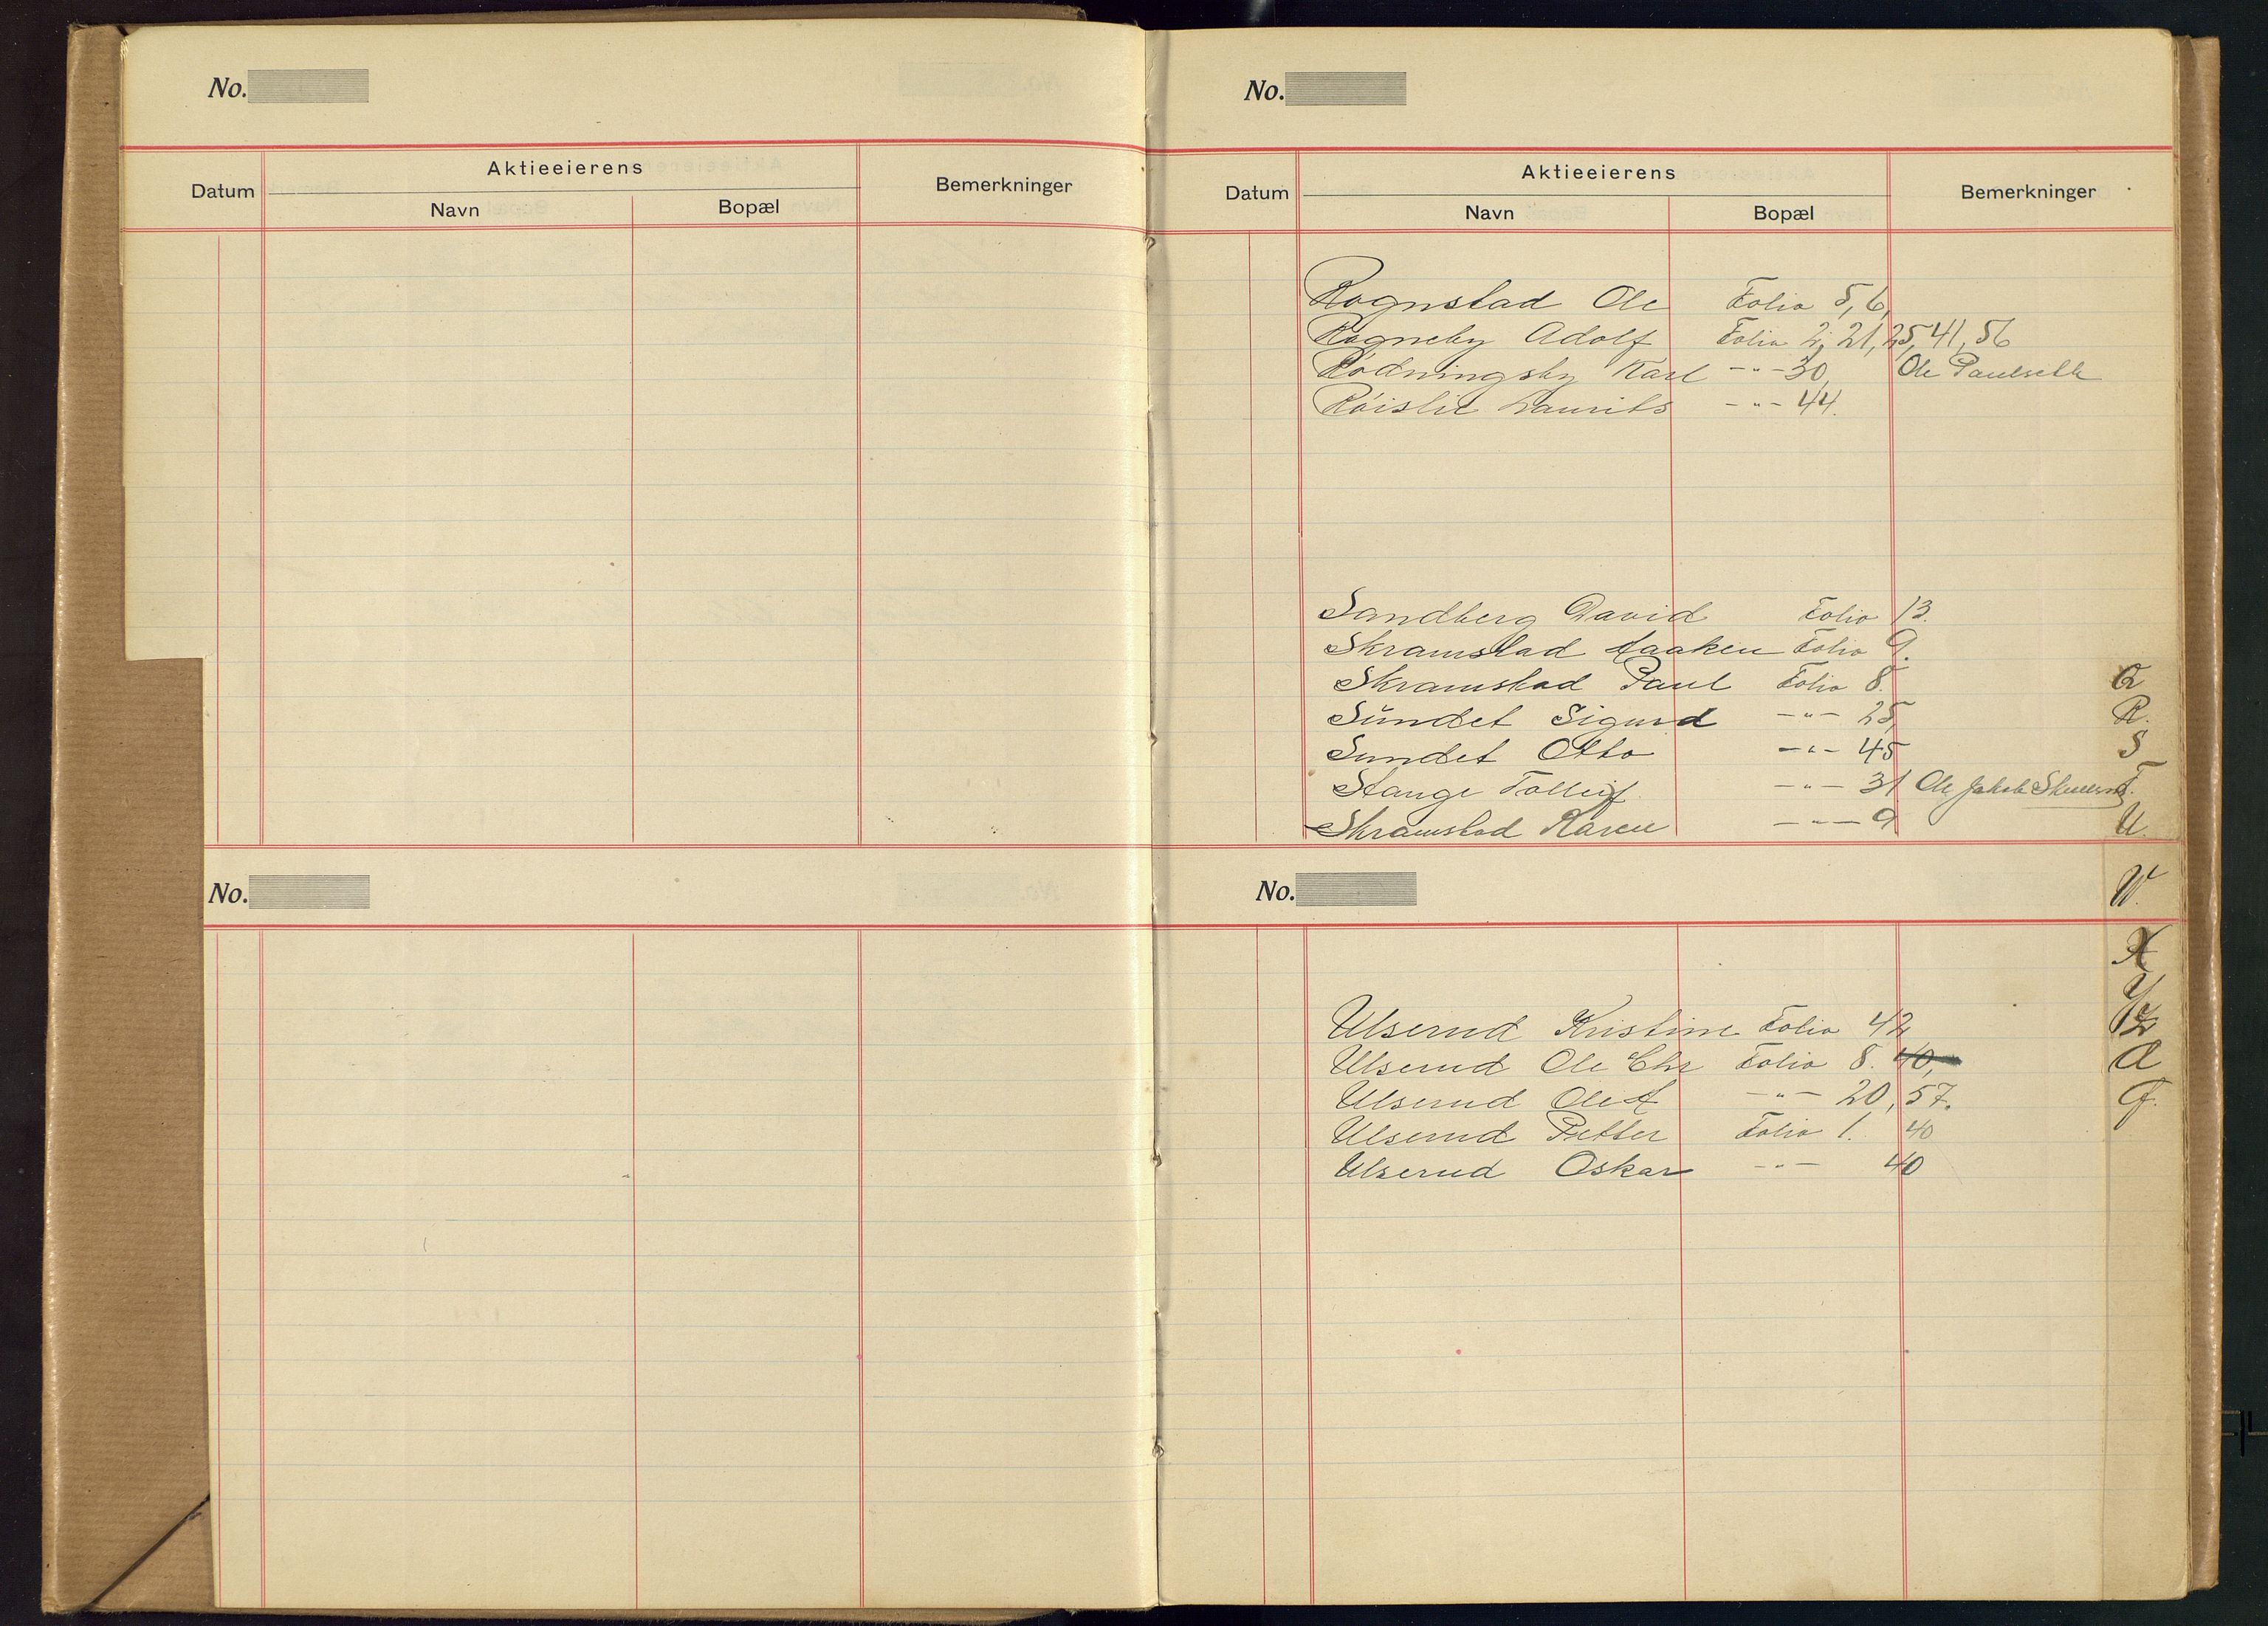 No.
Datum Aktieeierens Bemerkninger
Navn Bopæl
No.
No.
Datum Aktieeierens Bemerkninger
Navn Bopæl
Rognstad Ole Folio 5, 6,
Rogneby Adolf Folio 2, 21, 25, 41, 56
Rödningsby Karl -"- 30, Ole
Röislie Laurits -"- 44.
Sandberg David Folio 13.
Skramstad Haaken Folio 9.
Skramstad Paul Folio 8.
Sŭndet Sigurd -"- 25,
Sundet Otto -"- 45
Stange Tolleif -"- 31 Ole Jakob
Skramstad Karen -"- 9
No.
Ulserud Kristine Folio 42
Ulserud Ole Chr Folio 8. 40,
Ulserud Ole A -"- 20, 57.
Ulserud Petter Folio 1. 40
Ulserud Oskar -"- 40
Q
R.
S
T.
U.
W.
X
Y
Z